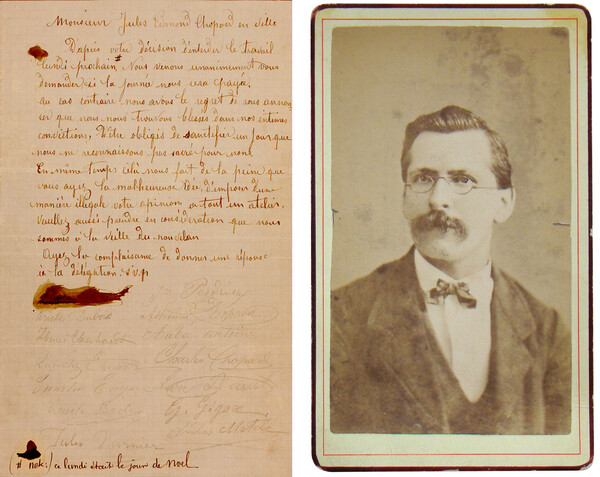 Monsieur Jules Edmond Chopard en ville
D'après votre décision d'interdir le travail
lundi prochain # Nous venons unanimement vous
demander si la journée nous sera payée,
au cas contraire nous avons le regret de vous annon
cer que nous nous trouvons blessés dans nos intimes
convictions, d'être obligés de sanctifier un jour que
nous ne reconnaissons pas sacré pour nous.
En même temps cela nous fait de la peine que
vous ayez la malheureuse idée, d'imposer d'une
manière illégale votre opinion a tout un atelier.
Veuillez aussi prendre en considération que nous
sommes à la veille du nouvelan
Ayez la complaisance de donner une réponse
à la délégation. s.v.p
Chopard
Charles Chopard
(# note:) ce lundi était le jour de Noel